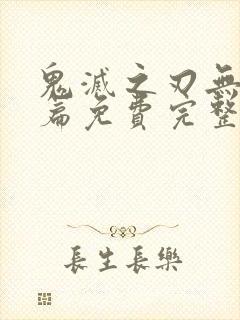 鬼滅之刃無
篇免費完整
長生長樂